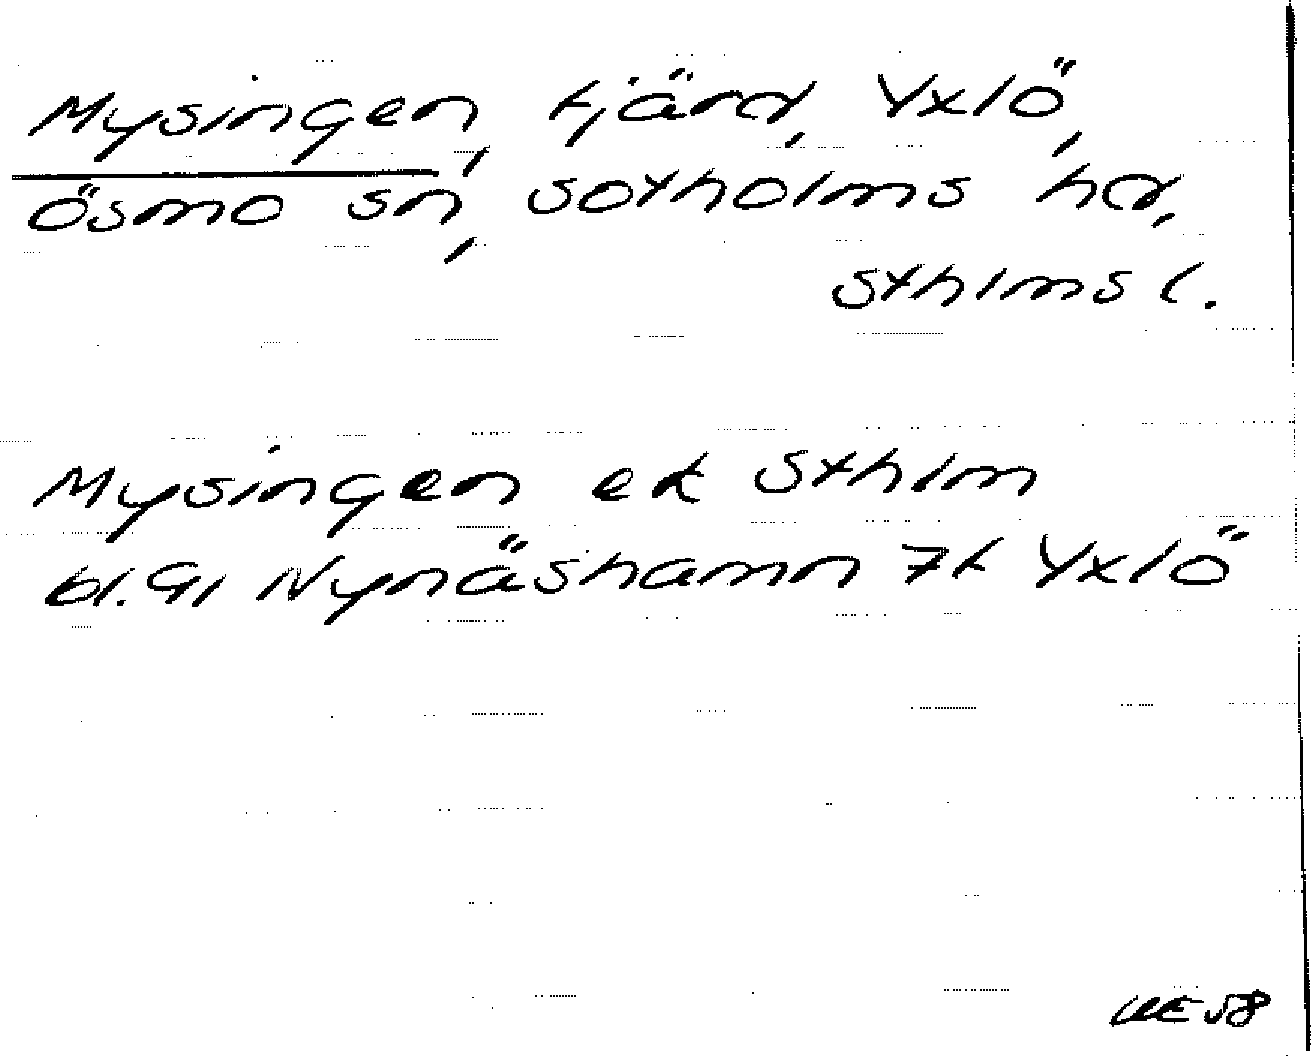 Mysingen, fjärd, Yxlö,
Ösmo sn, Sotholms hd,
Sthlms l.
Mysingen ek Sthlm
bl. 91 Nynäshamn 7k Yxlö
58